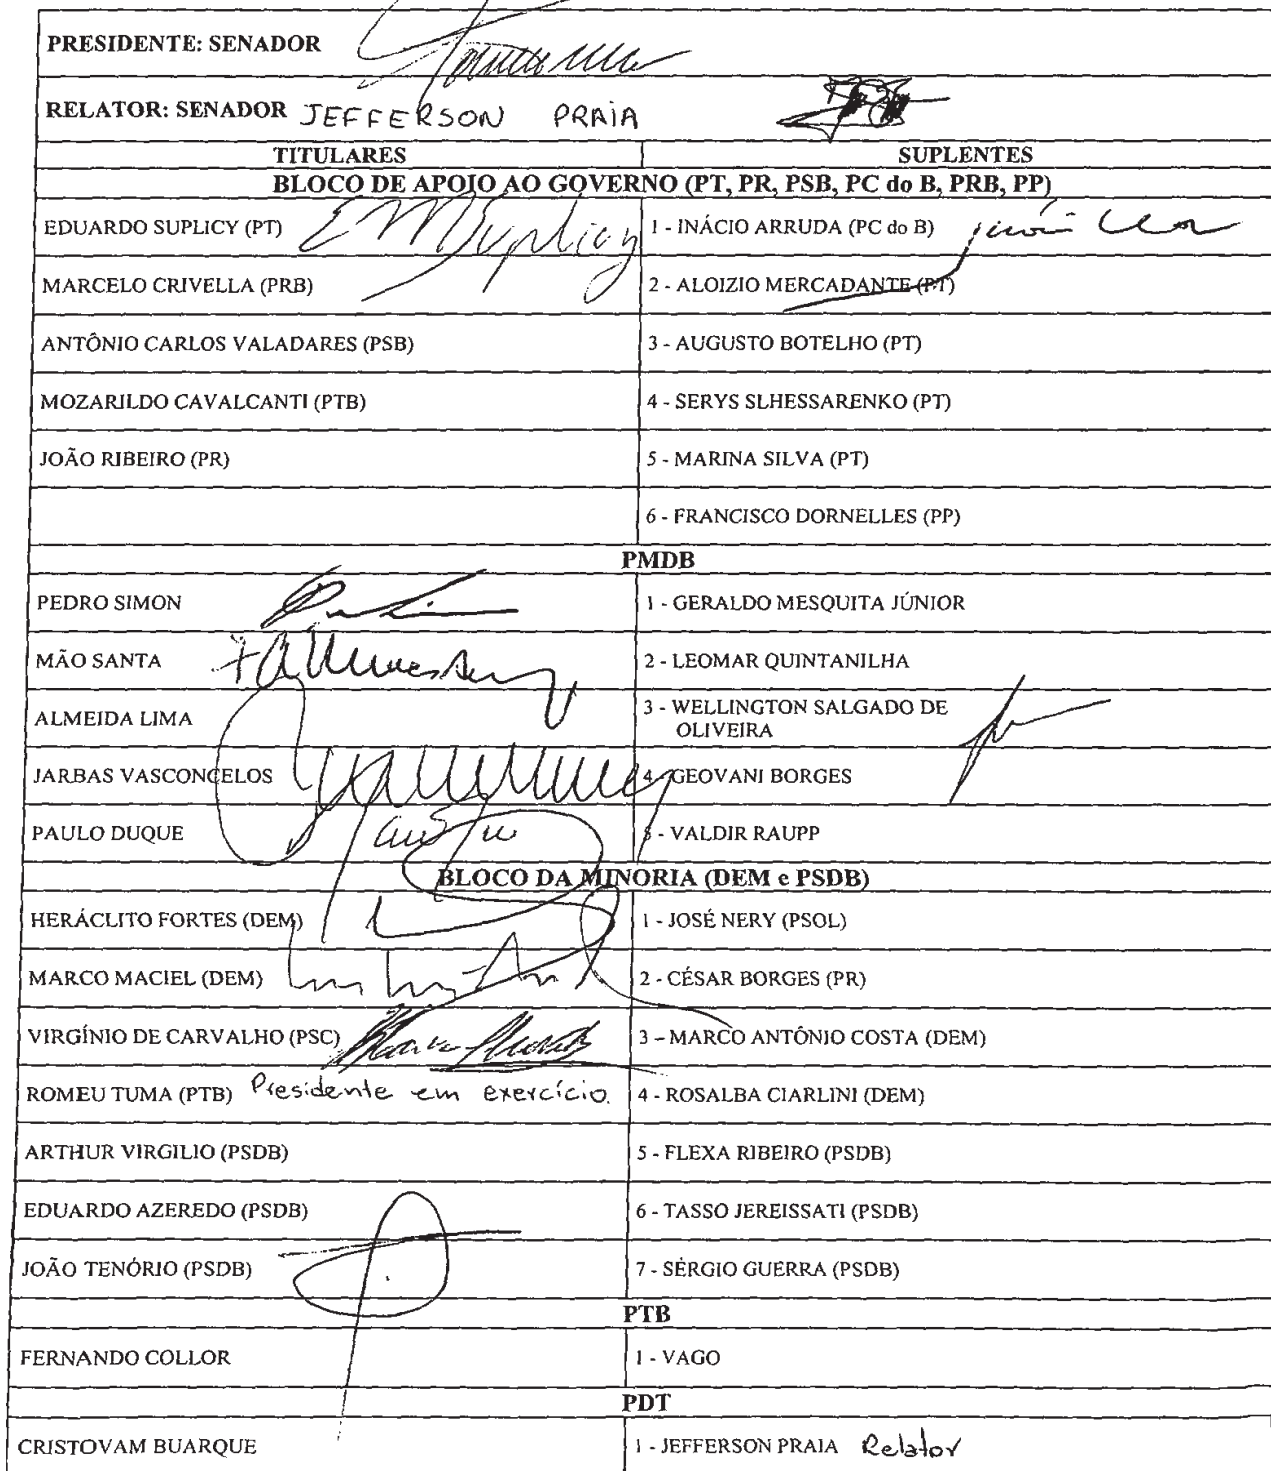 PRESIDENTE: SENADOR
RELATOR: SENADOR JEFFERSON PRAIA
TITULARES SUPLENTES
BLOCO DE APOIO AO GOVERNO (PT, PR, PSB, PC do B, PRB, PP)
EDUARDO SUPLICY (PT) EMSuplicy 1 - INÁCIO ARRUDA (PC do B)
MARCELO CRIVELLA (PRB) 2 - ALOIZIO MERCADANTE (PT)
ANTÔNIO CARLOS VALADARES (PSB) 3 - AUGUSTO BOTELHO (PT)
MOZARILDO CAVALCANTI (PTB) 4 - SERYS SLHESSARENKO (PT)
JOÃO RIBEIRO (PR) 5 - MARINA SILVA (PT)
6 - FRANCISCO DORNELLES (PP)
PMDB
PEDRO SIMON 1 - GERALDO MESQUITA JÚNIOR
MÃO SANTA 2 - LEOMAR QUINTANILHA
ALMEIDA LIMA 3 - WELLINGTON SALGADO DE
OLIVEIRA
JARBAS VASCONCELOS 4 - GEOVANI BORGES
PAULO DUQUE 5 - VALDIR RAUPP
BLOCO DA MINORIA (DEM e PSDB)
HERÁCLITO FORTES (DEM) 1 - JOSÉ NERY (PSOL)
MARCO MACIEL (DEM) 2 - CÉSAR BORGES (PR)
VIRGÍNIO DE CARVALHO (PSC) 3 - MARCO ANTÔNIO COSTA (DEM)
ROMEU TUMA (PTB) Presidente em exercício. 4 - ROSALBA CIARLINI (DEM)
ARTHUR VIRGILIO (PSDB) 5 - FLEXA RIBEIRO (PSDB)
EDUARDO AZEREDO (PSDB) 6 - TASSO JEREISSATI (PSDB)
JOÃO TENÓRIO (PSDB) 7 - SÉRGIO GUERRA (PSDB)
PTB
FERNANDO COLLOR 1 - VAGO
PDT
CRISTOVAM BUARQUE 1 - JEFFERSON PRAIA Relator